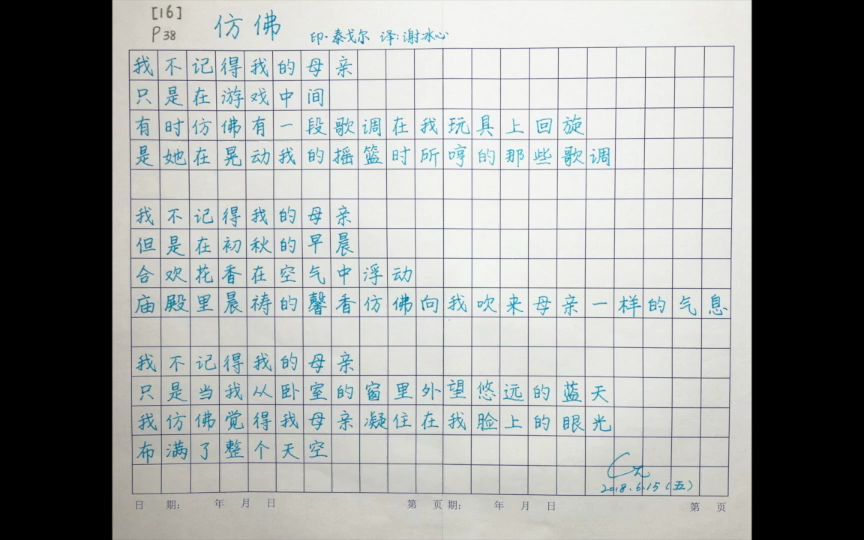 [16]
P38
仿佛
印·泰戈尔 译:谢冰心
我不记得我的母亲
只是在游戏中间
有时仿佛有一段歌调在我玩具上回旋
是她在晃动我的摇篮时所哼的那些歌调
我不记得我的母亲
但是在初秋的早晨
合欢花香在空气中浮动
庙殿里晨祷的馨香仿佛向我吹来母亲一样的气息
我不记得我的母亲
只是当我从卧室的窗里外望悠远的蓝天
我仿佛觉得我母亲凝住在我脸上的眼光
布满了整个天空
2018.6.15(五)
日 期: 年 月 日 第 页 期: 年 月 日 第 页